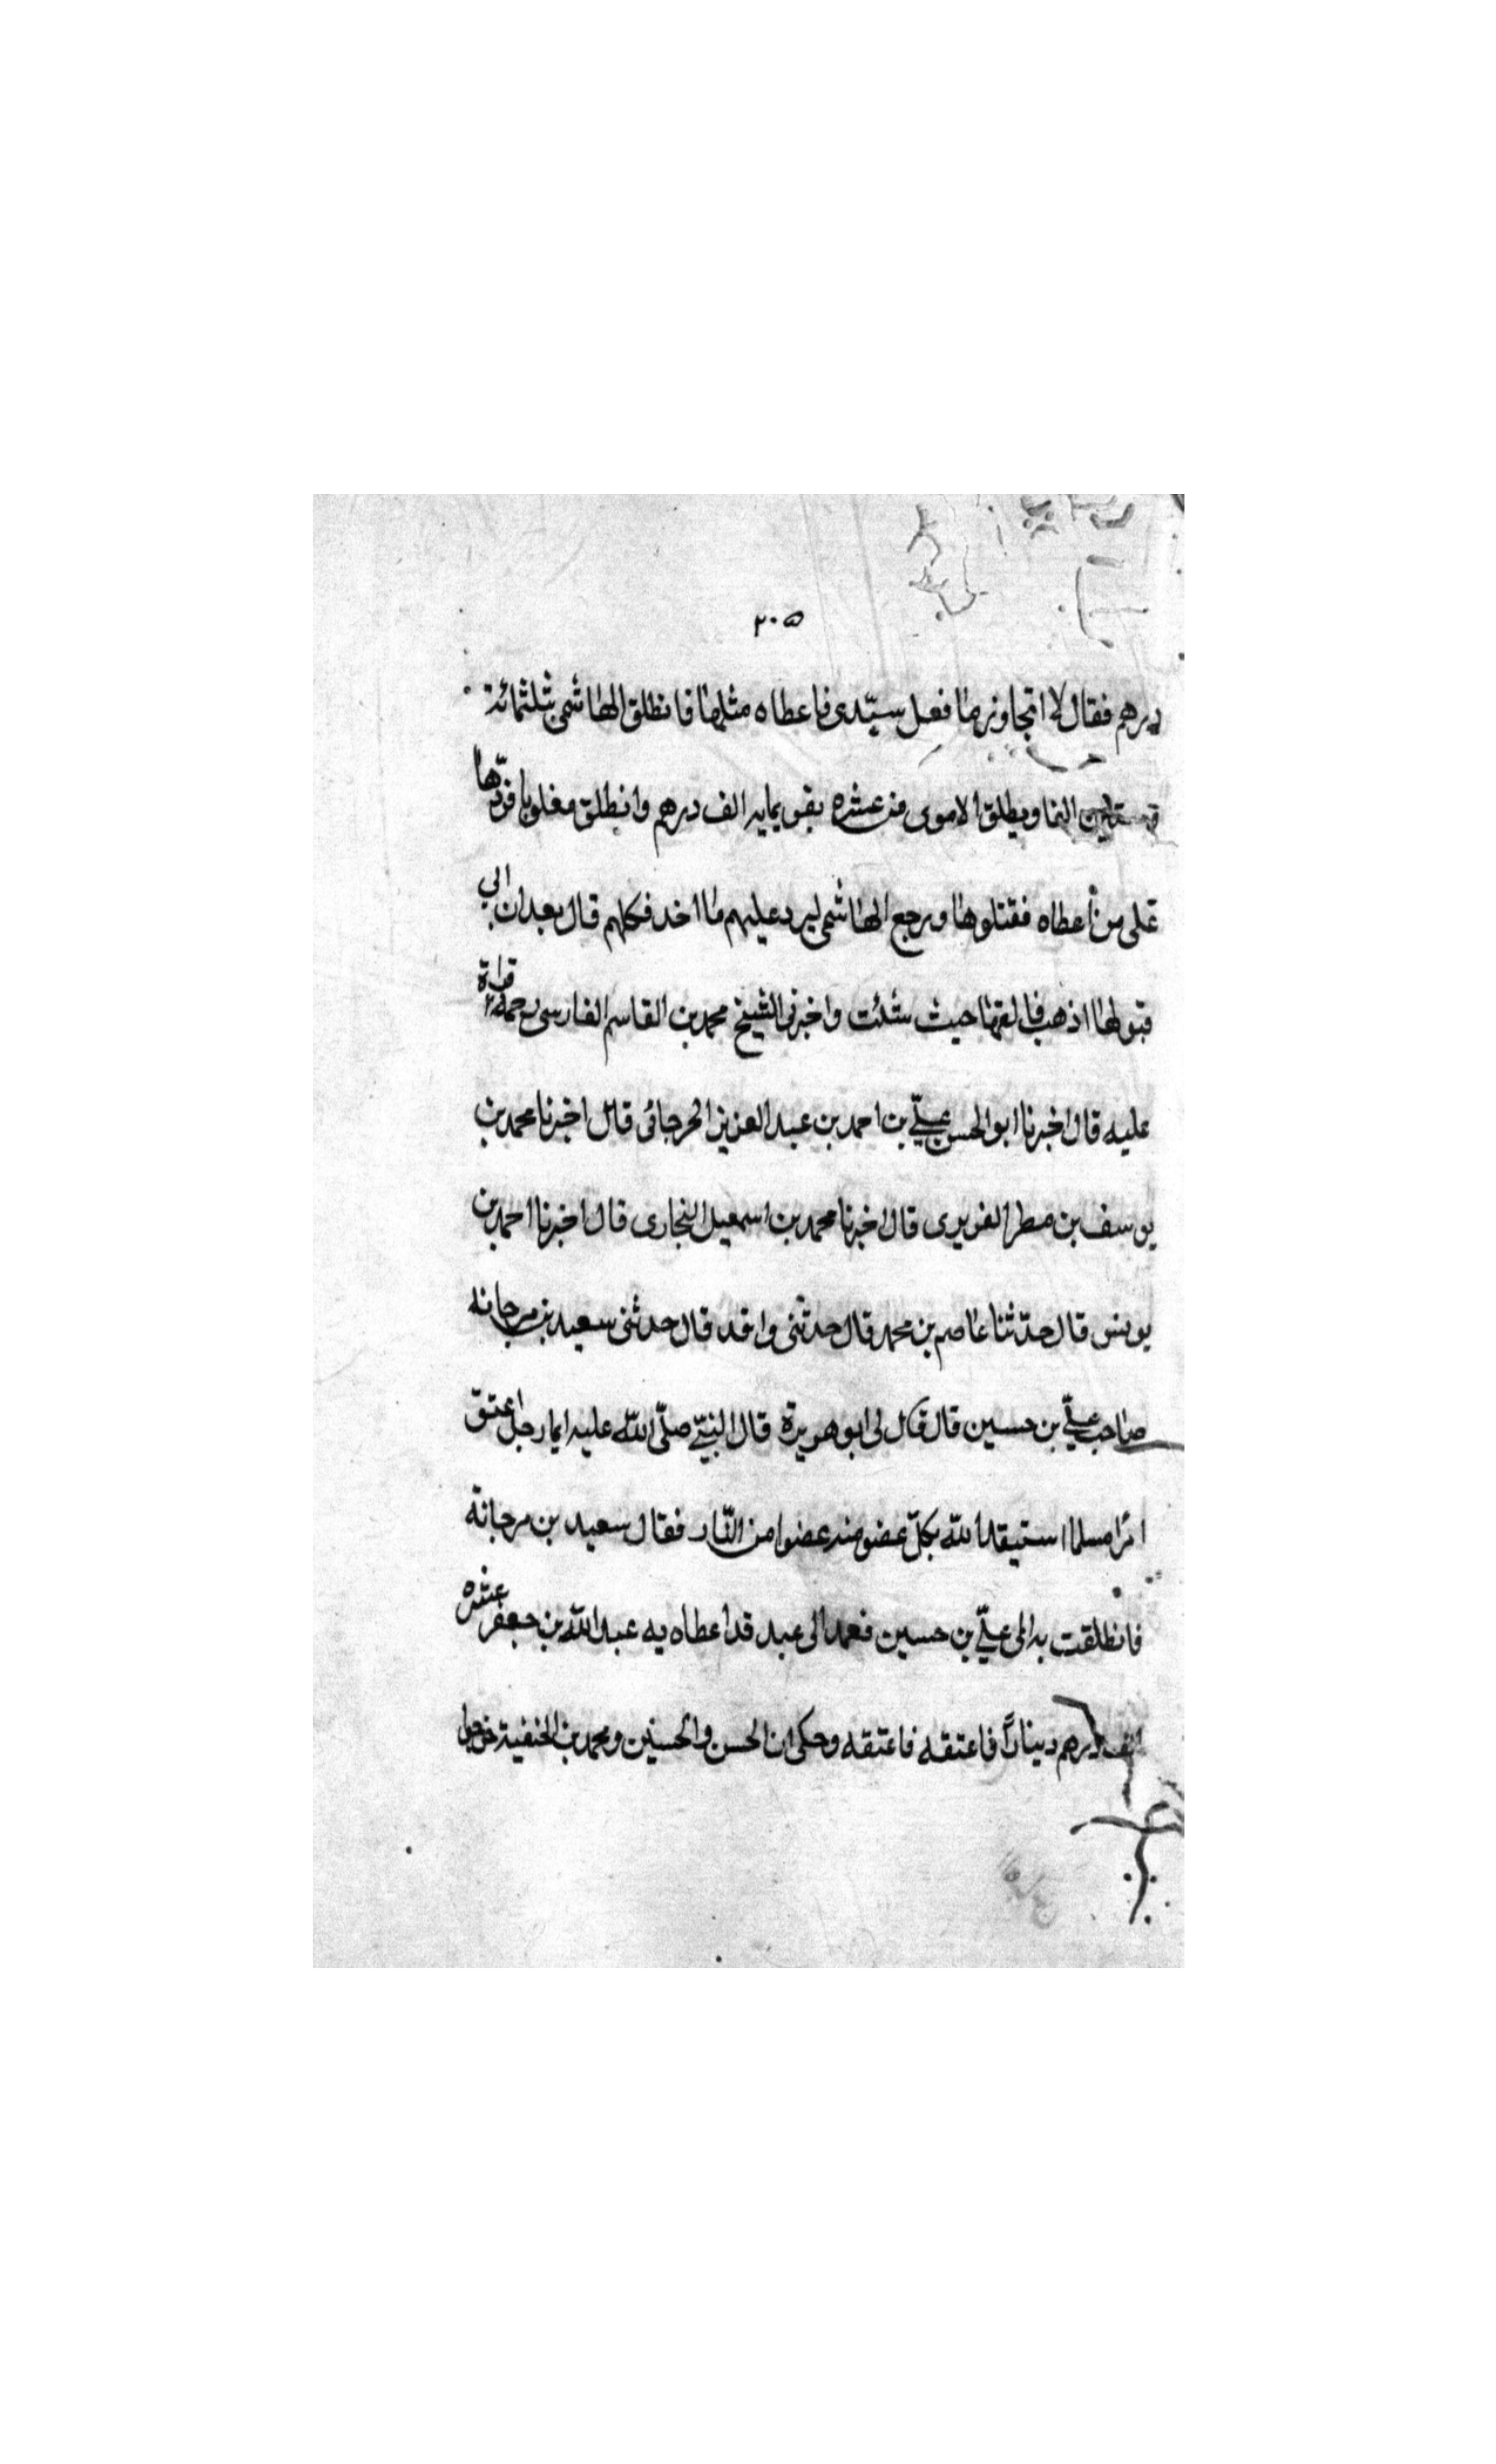 ٣٠٥
درهم فقال لا اتجاوز ما فعل سيّدى فاعطاه مثلها فانطلق الهاشمى بثلثمائة
الفا ويطلق الاموى من عشره بقو بمايه الف درهم وانطلق مغلوبا فردّها
على من اعطاه فقتلوها ورجع الهاشمى ليرد عليهم ما اخد فكلهم قال بعد ان ابي
قبولها اذهب فالقها حيث شئت واخبرنى الشيخ محمد بن القاسم الفارسى رحمة الله
عليه قال اخبرنا ابو الحسن علىّ بن احمد بن عبد العزيز الجرجانى قال اخبرنا محمد بن
يوسف بن مطر الفربرى قال اخبرنا محمد بن اسمعيل البخارى قال اخبرنا احمد بن
يونس قال حدّثنا عاصم بن محمد قال حدثنى واقد قال حدثنى سعيد بن مرجانه
صاحب علىّ بن حسين قال قال لى ابو هريرة قال النبىّ صلّى اللّه عليه ايما رجل اعتق
امرا مسلما استيقد اللّه بكلّ عضو منه عضوا من النّار فقال سعيد بن مرجانة
فانطلقت به الى علىّ بن حسين فعمد الى عبد قد اعطاه به عبد اللّه بن جعفر عشره
الف درهم دينارًا فاعتقه فاعتقه وحكى ان الحسن والحسين ومحمد بن الحنفية خرجوا